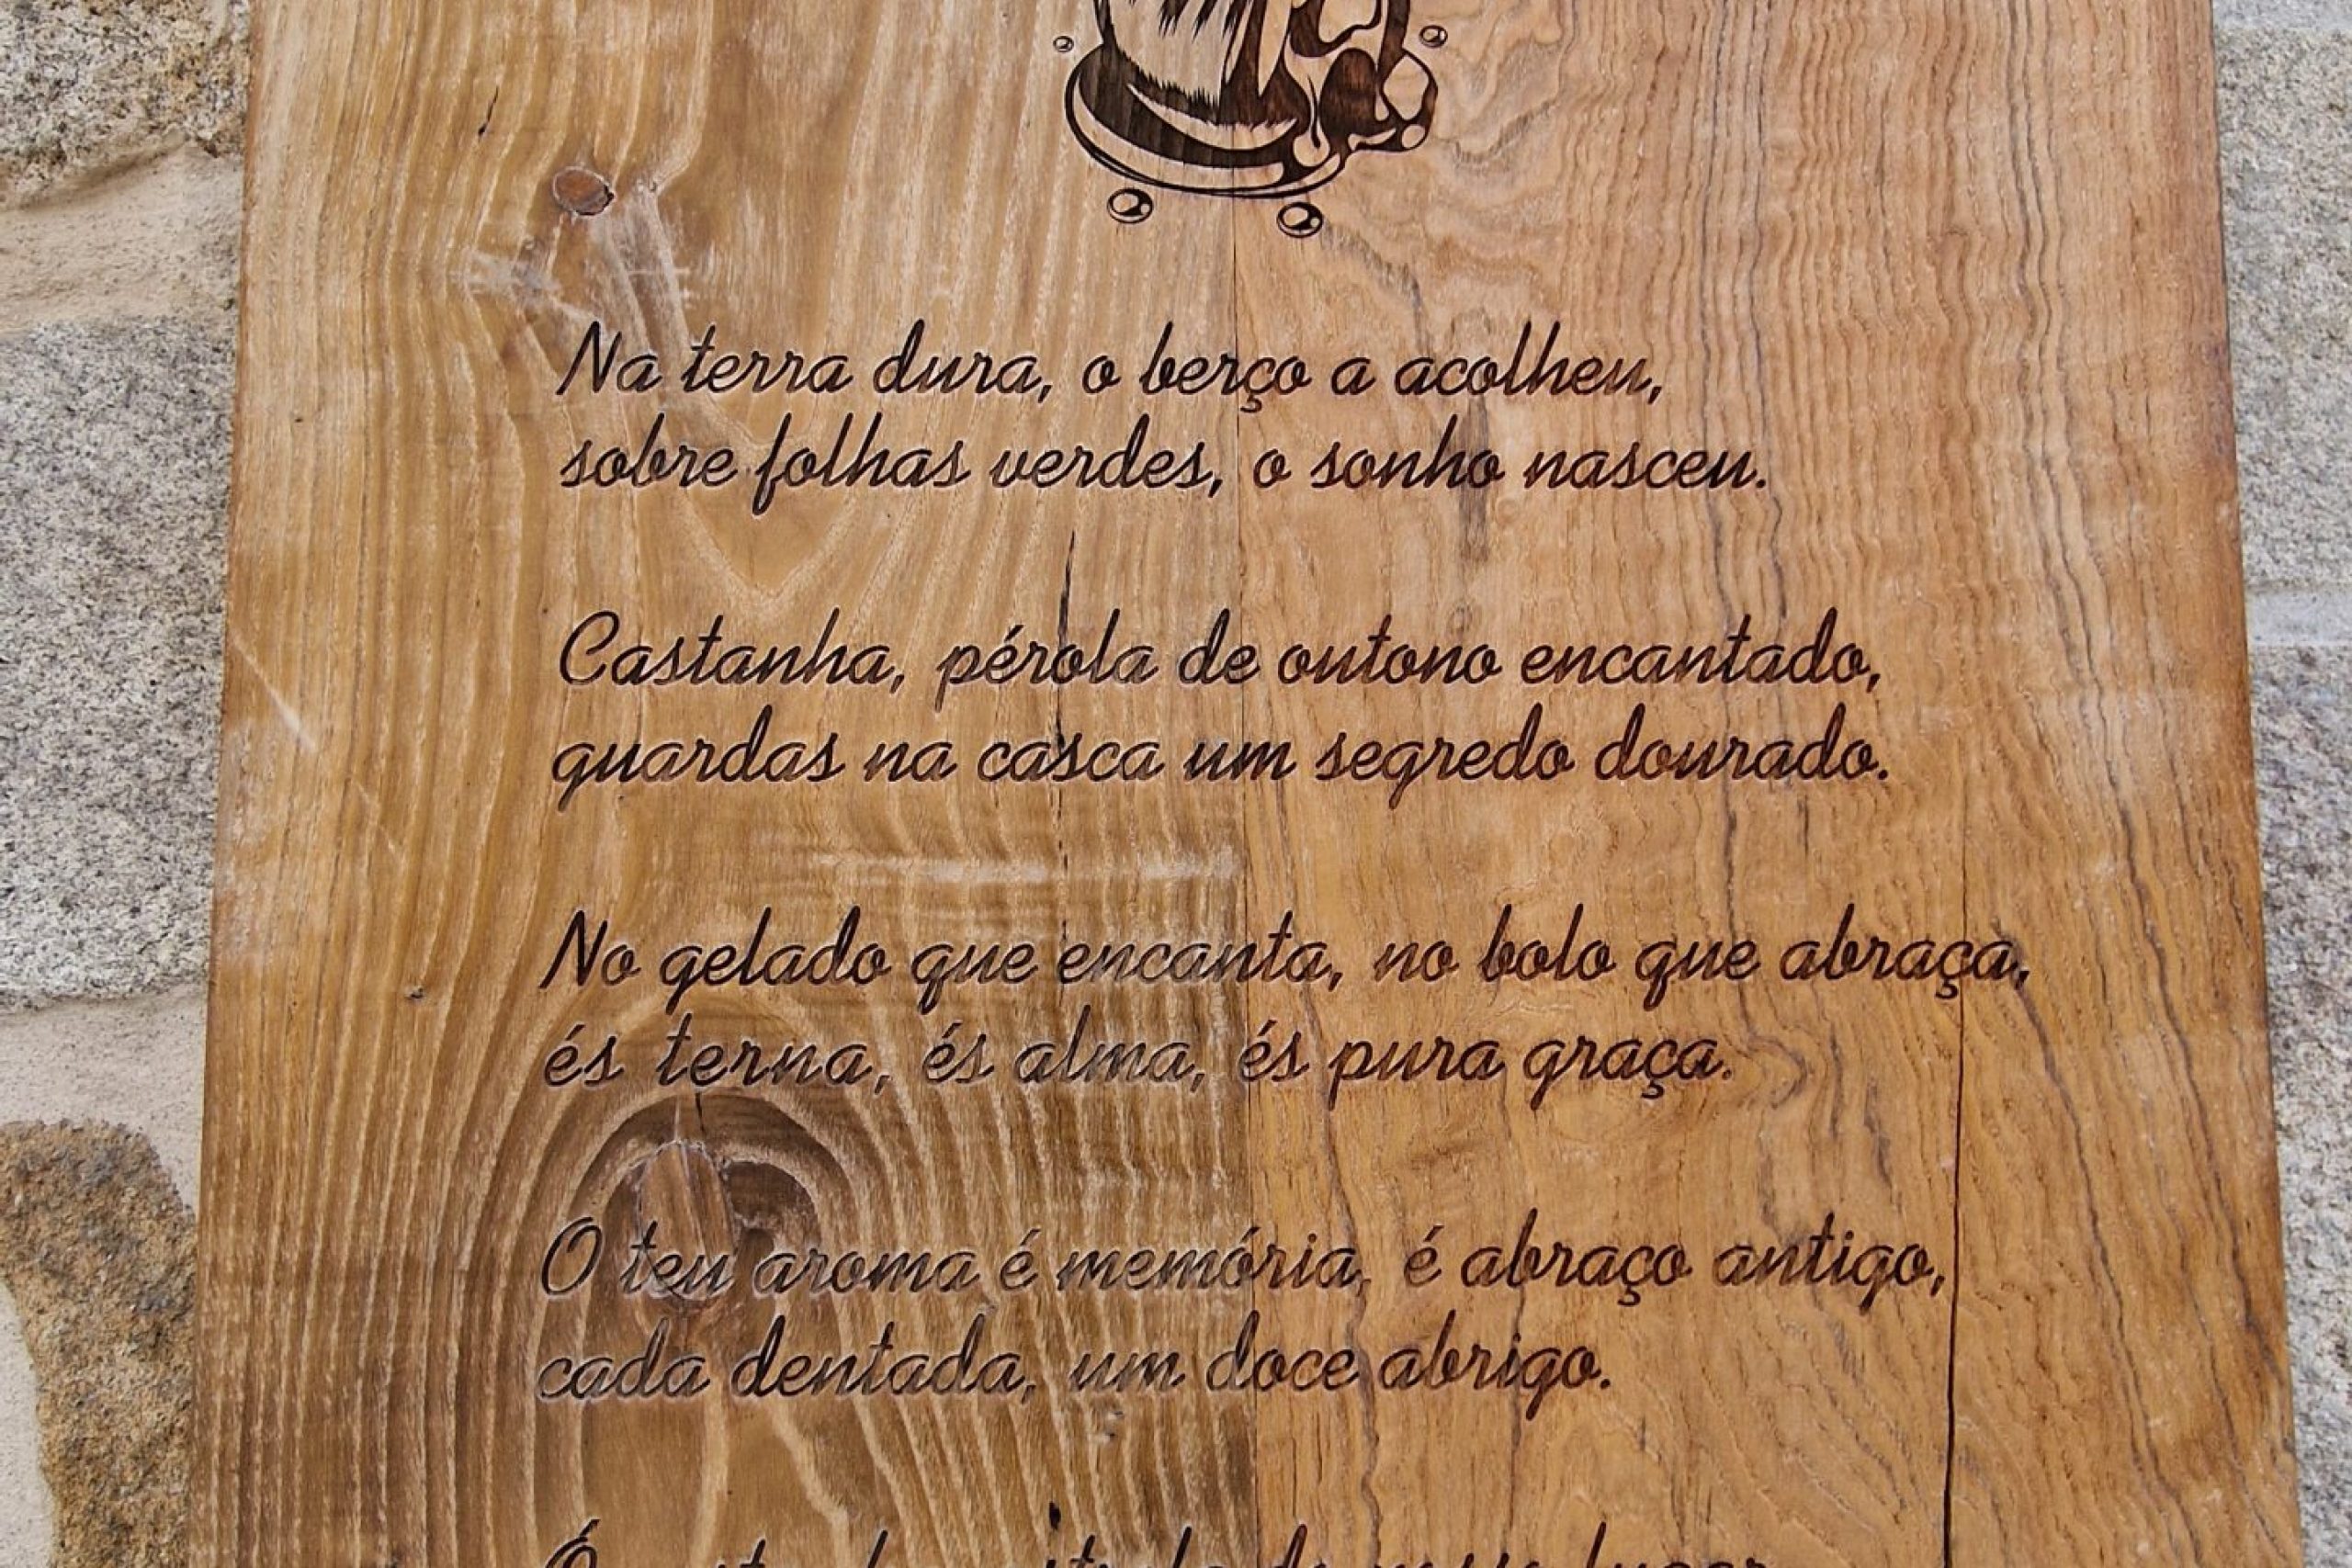 Na terra dura, o berço a acolheu,
sobre folhas verdes, o sonho nasceu.
Castanha, pérola de outono encantado,
guardas na casca um segredo dourado.
No gelado que encanta, no bolo que abraça,
és terna, és alma, és pura graça.
O teu aroma é memória, é abraço antigo,
cada dentada, um doce abrigo.